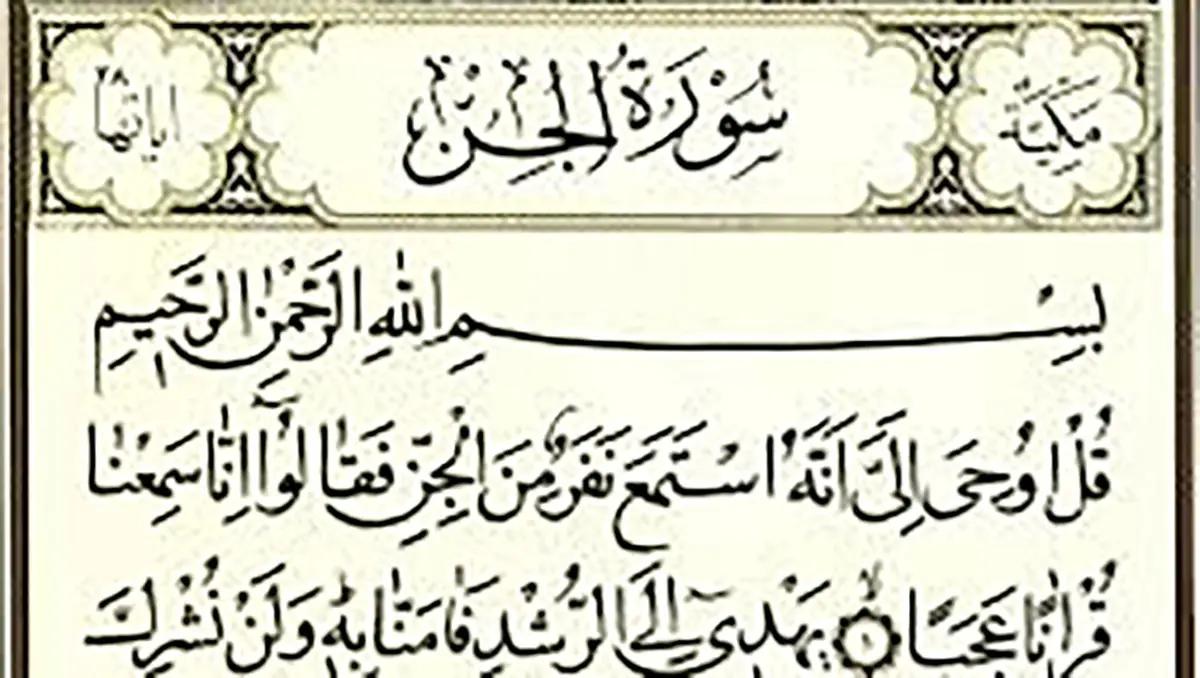 مَكِّيَّةٌ سُوْرَةُ الْجِنِّ اٰيَاتُهَا ٢٨
بِسْمِ اللّٰهِ الرَّحْمٰنِ الرَّحِيْمِ
قُلْ اُوْحِىَ اِلَىَّ اَنَّهُ اسْتَمَعَ نَفَرٌ مِّنَ الْجِنِّ فَقَالُوْٓا اِنَّا سَمِعْنَا
قُرْاٰنًا عَجَبًا ۝١ يَّهْدِىْٓ اِلَى الرُّشْدِ فَاٰمَنَّا بِهٖ وَلَنْ نُّشْرِكَ